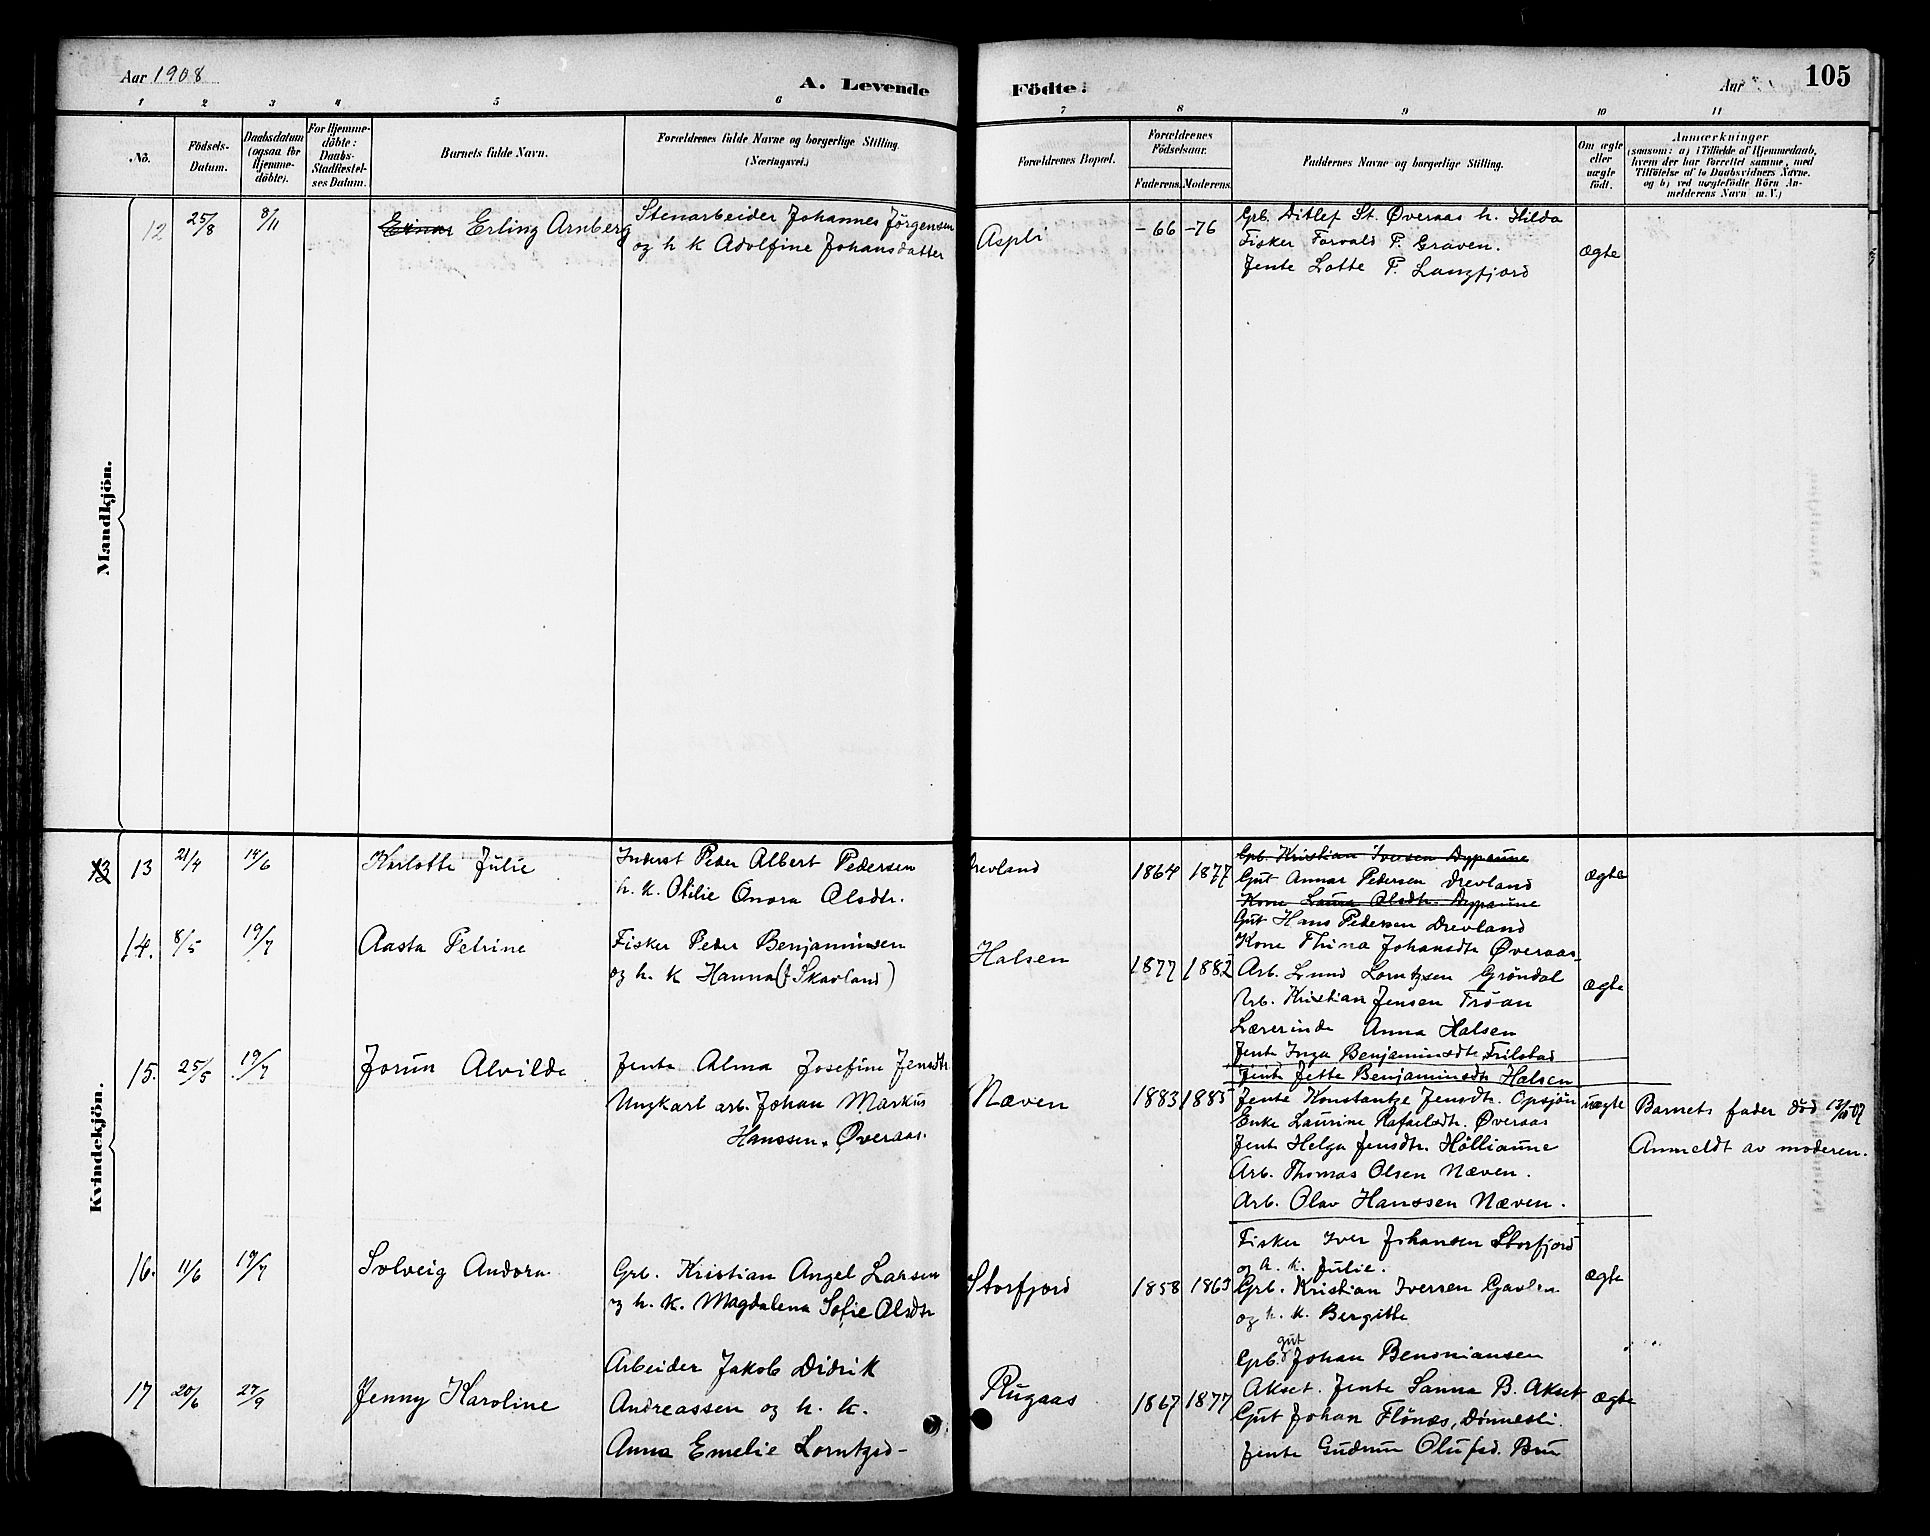 Aar 1908
A. Levende
Födte.
Aar
105
1 2 3 4 5 6 7 8 9 10 11
No.
Födsels-Datum.
Daabsdatum (ogsaa for Hjemme-döbte).
For Hjemme-döbte: Daabs-Stadfæstel-ses Datum.
Barnets fulde Navn.
Forældrenes fulde Navne og borgerlige Stilling. (Næringsvei.)
Forældrenes Bopæl.
Forældrenes Födselsaar.
Faderens. Moderens.
Faddernes Navne og borgerlige Stilling.
Om ægte eller uægte födt.
Anmærkninger
(saasom: a) i Tilfælde af Hjemmedaab,
hvem der har forrettet samme, med
Tilföielse af to Daabsvidners Navne.
og b) ved uægtefödte Börn An-
melderens Navn m. V.)
Mandkjön.
12 25/8 8/11 Einar Erling Arnberg
Stenarbeider Johannes Jørgensen
og h k Adolfine Johansdatter
Aspli
-66 -76
Grb. Ditlef St. Øveraas h. Hilda
Fisker Torvald P. Graven.
Jente Lotte P. Langfjord
Ægte
Kvindekjön.
13 13 21/4 14/6 Karlotte Julie
Inderst Peder Albert Pedersen
h. k. Otilie Onora Olsdtr.
Drevland
1864 1877
Grb. Kristian Iversen Dypaune
Gut Annar Pedersen Drevland
Kone Laura Olsdtr. Dypaune
Gut Hans Pedersen Drevland
Ægte
14. 8/5 19/7 Aasta Petrine
Fisker Peder Benjaminsen
og h. k Hanna (f Skavland)
Halsen
1877 1882
Kone Thina Johansdtr Øveraas
Arb. Lund Lorntzsen Gröndal
Arb. Kristian Jensen Tröan
Lærerinde Anna Halsen
Jente Inga Benjaminsdtr. Frilstad
Jente Jette Benjaminsdtr Halsen
Ægte
15. 25/5 19/7 Jorun Alvilde
Jente Alma Josefine Jensdtr.
Ungkarl arb. Johan Markus
Hanssen. Øveraas.
Næven
1883 1885
Jente Konstantze Jensdtr. Opsjön
Enke Laurine Rafaelsdtr. Øveraas
Jent Helga Jensdtr. Hölliaune
Arb. Thomas Olsen Næven.
Arb. Olav Hanssen Næven.
uægte
Barnets fader död 12/10-07
Anmeldt av moderen.
16. 11/6 19/7 Solveig Andora
Grb. Kristian Angel Larsen
og h. k. Magdalena Sofie Olsdtr
Storfjord
1858 1863
Fisker Iver Johansen Storfjord
og h. k. Julie.
Grb. Kristian Iversen Gavlen
og h. k. Bergitte
Ægte
17 20/6 27/9 Jenny Karoline
Arbeider Jakob Didrik
Andreassen og h. k.
Anna Emelie Lorntzsd-
Rugaas
1867 1877
Grb. gut Johan Benoniansen
Akset. Jente Sanna B. Akset
Gut Johan Flönæs, Dönnesli.
Jente Gudrun Olufsd. Bru
Ægte